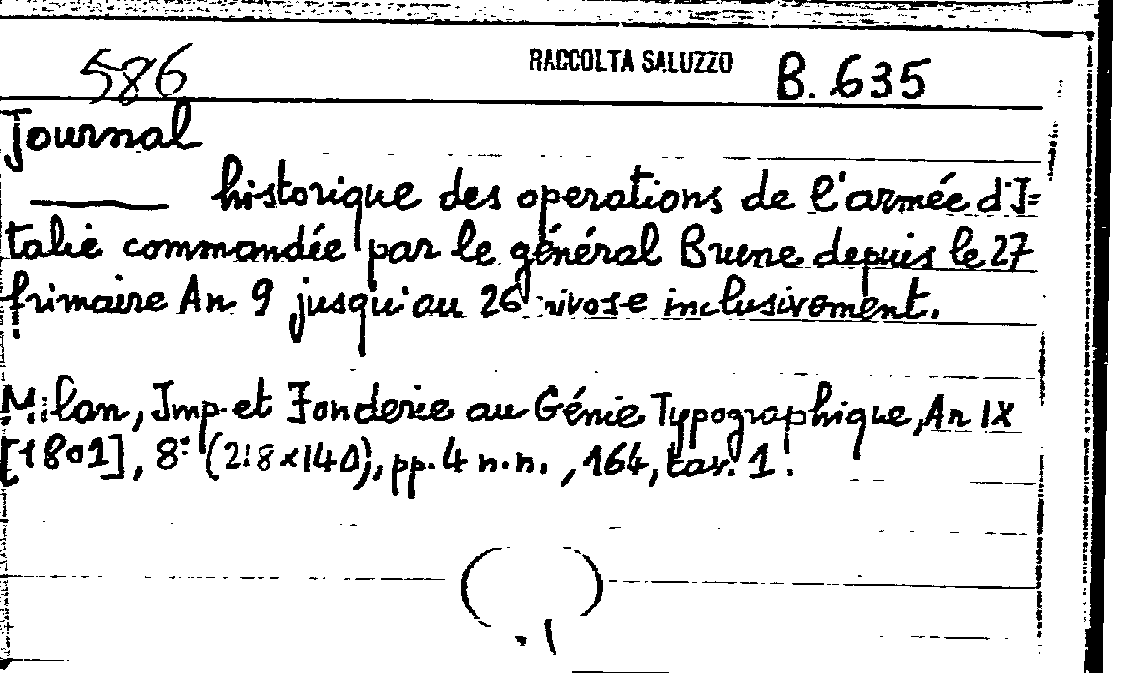 586 RACCOLTA SALUZZO B. 635
Journal
——— historique des operations de l'armée d'I=
talie commandée par le général Brune depuis le 27
frimaire An 9 jusqu'au 26 nivose inclusivement.
Milan, Imp et Fonderie au Génie Typographique, An IX
[1801], 8° (218x140), pp. 4 n.n., 164, tav. 1.